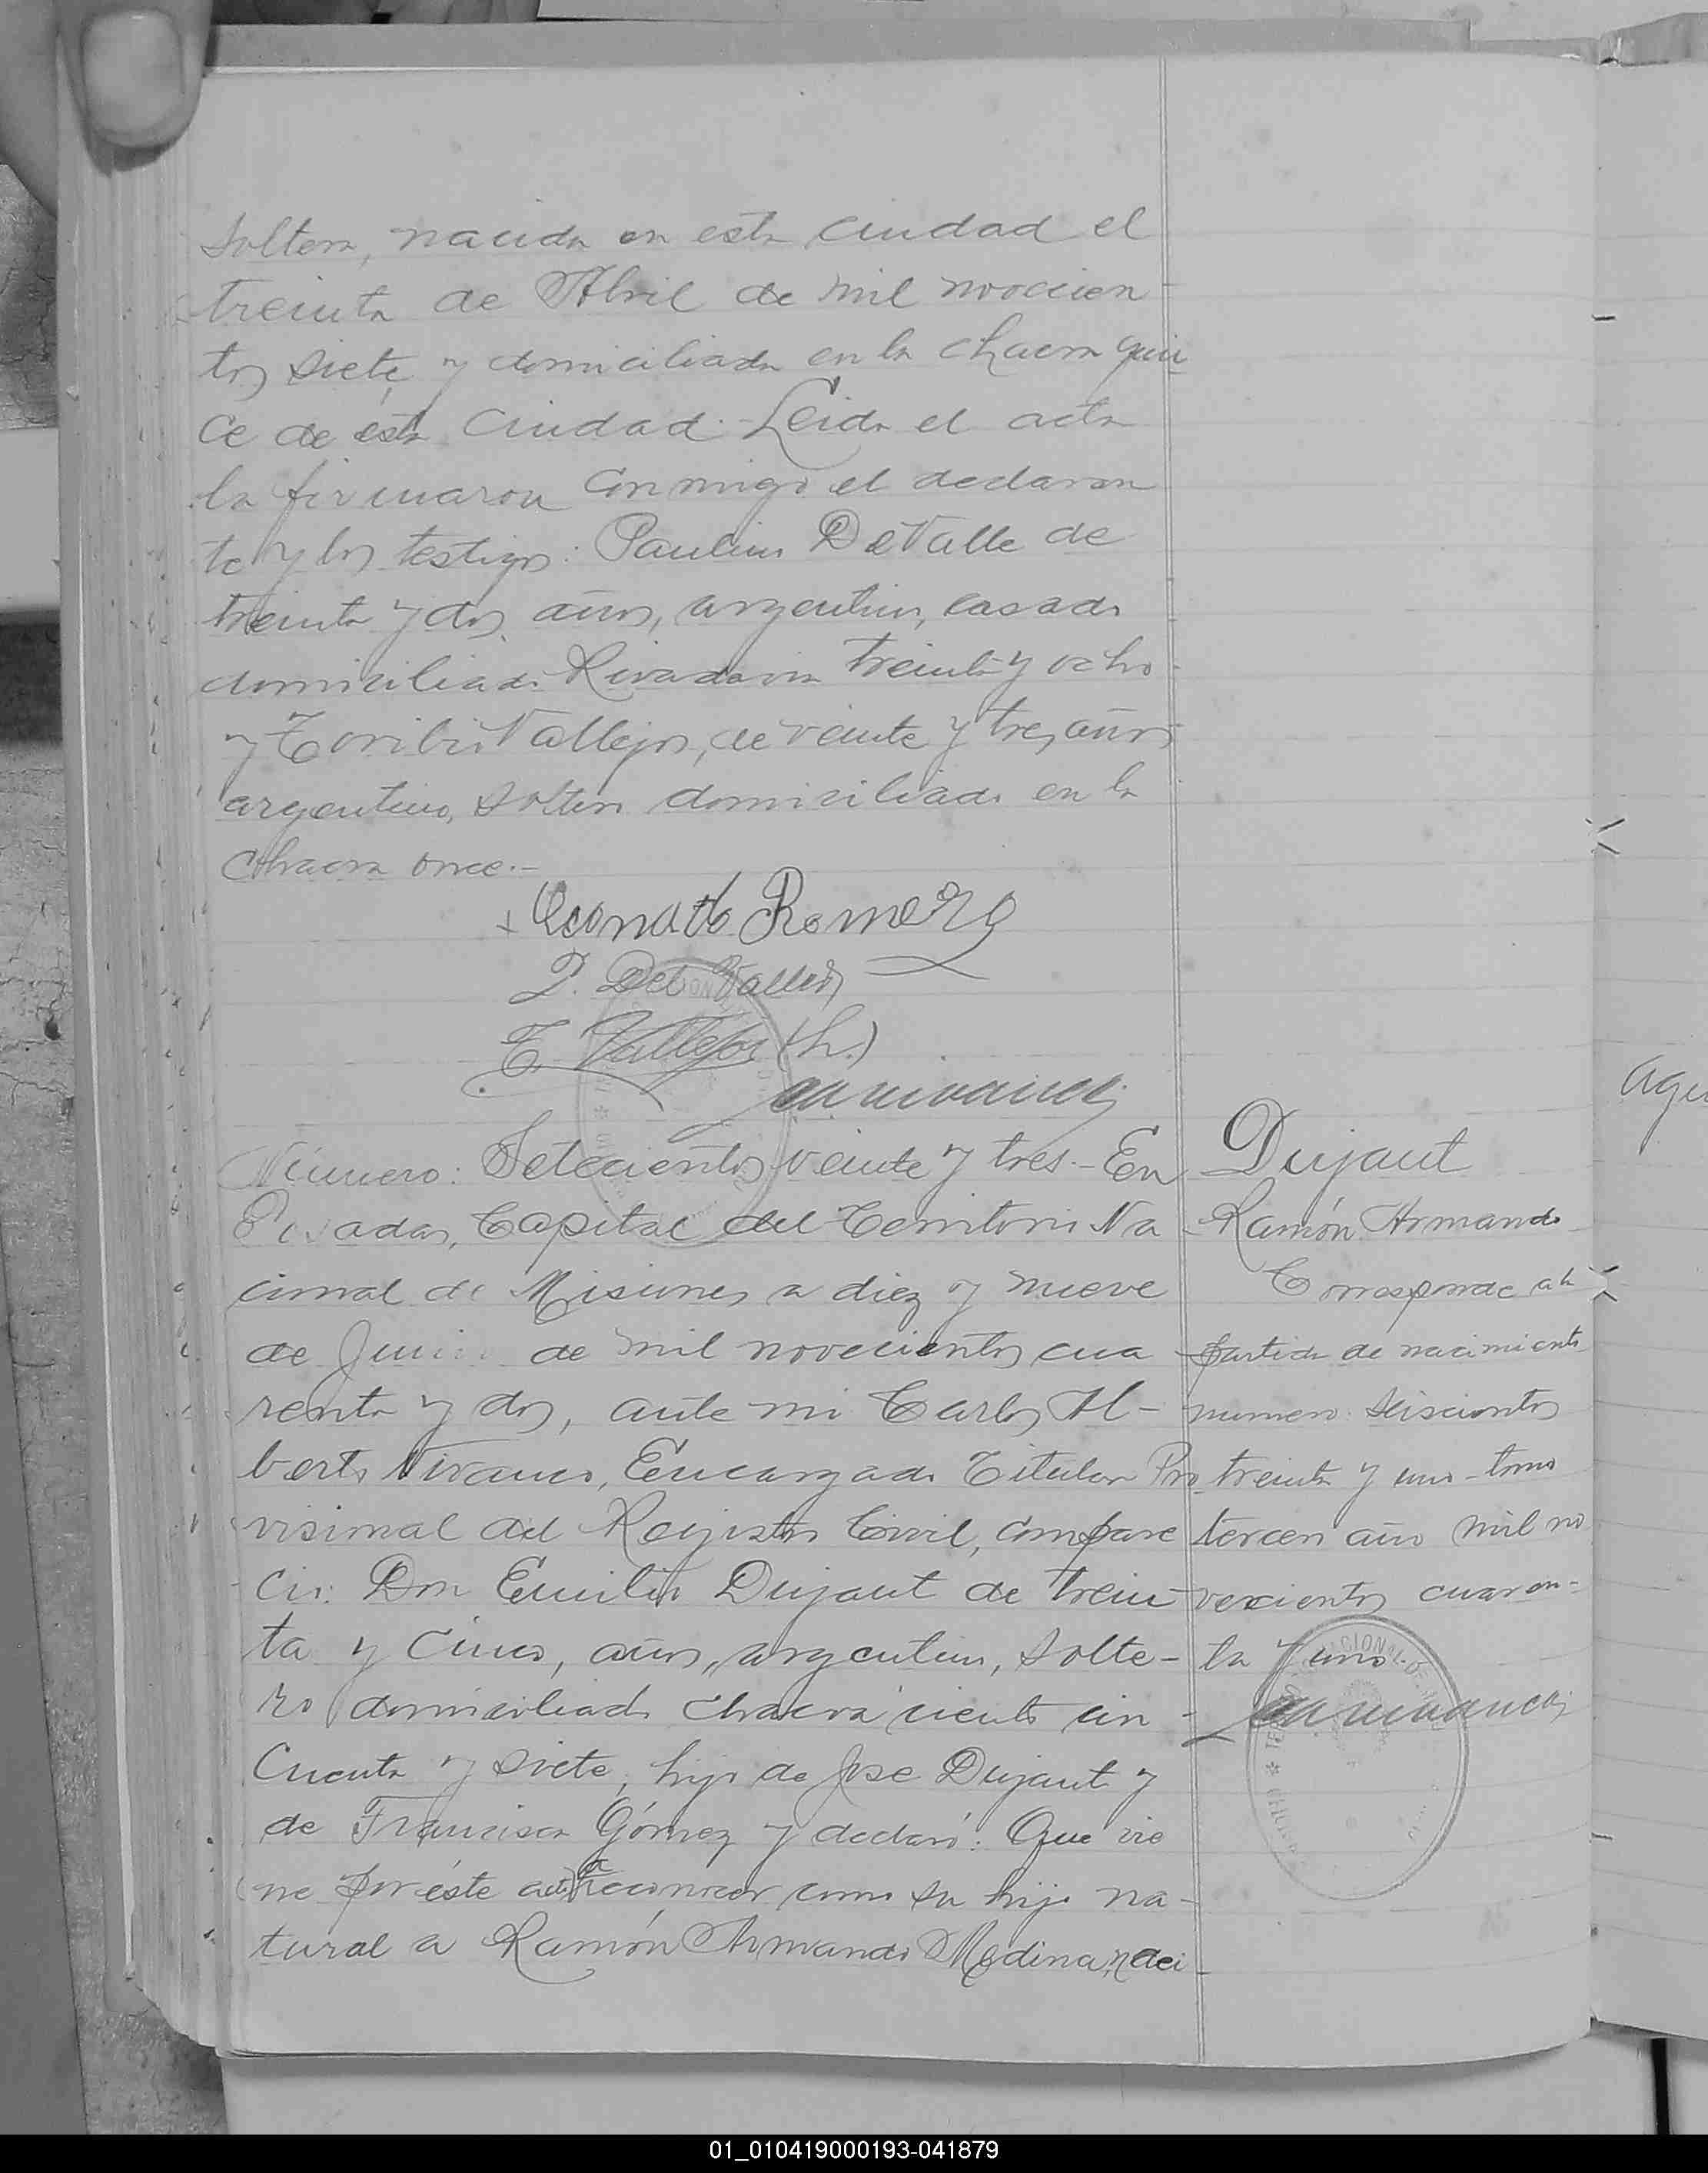 soltera, nacida en esta ciudad el
treinta de Abril de mil novecien
tos siete y domiciliada en la chacra quin
ce de ésta Ciudad. Leida el acta
la firmaron conmigo el declaran
te y los testigos: Paulino Del Valle de
treinta y dos años, argentino, casado
domiciliado Rivadavia treinta y ocho
y Toribio Vallejos, de veinte y tres años
argentino, soltero domiciliado en la
Chacra once.-
Leonardo Romero
P. Del Valle
T. Vallejos (h.)
Número: Setecientos veinte y tres.- En
Posadas, Capital del Territorio Na
cional de Misiones a diez y nueve
de Junio de mil novecientos cua
renta y dos, ante mi Carlos Al-
berto Vivanco, Encargado Titular Pro
visional del Registro Civil, compare
cio: Don Emilio Dujaut de trein
ta y cinco, años, argentino, solte-
ro domiciliado chacra ciento cin
cuenta y siete, hijo de Jose Dujaut y
de Francisca Gómez y declaró: Que vie
ne por éste acto a reconocer como su hijo na-
tural a Ramón Armando Medina, naci
Dujaut
Ramón Armando
Corresponde a la
partida de nacimiento
numero seiscientos
treinta y uno - tomo
tercero año mil no
vecientos cuaren-
ta y uno
01_010419000193-041879